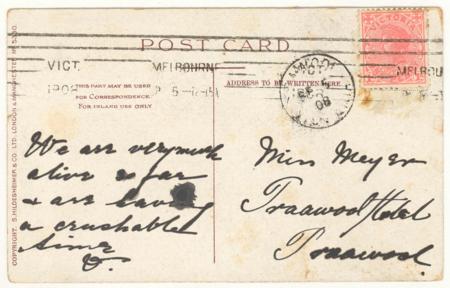 POST CARD
VICTORIA
VICT.
MELBOURNE
MELBOU
THIS PART MAY BE USED
FOR CORRESPONDENCE.
FOR INLAND USE ONLY
ADDRESS TO BE WRITTEN HERE
1908
08
COPYRIGHT. S. HILDESHEIMER & CO. LTD. LONDON & MANCHESTER
We are very much
alive so far
& are having
a crushable
time
Miss Meyer
Traawool Hotel
Traawool